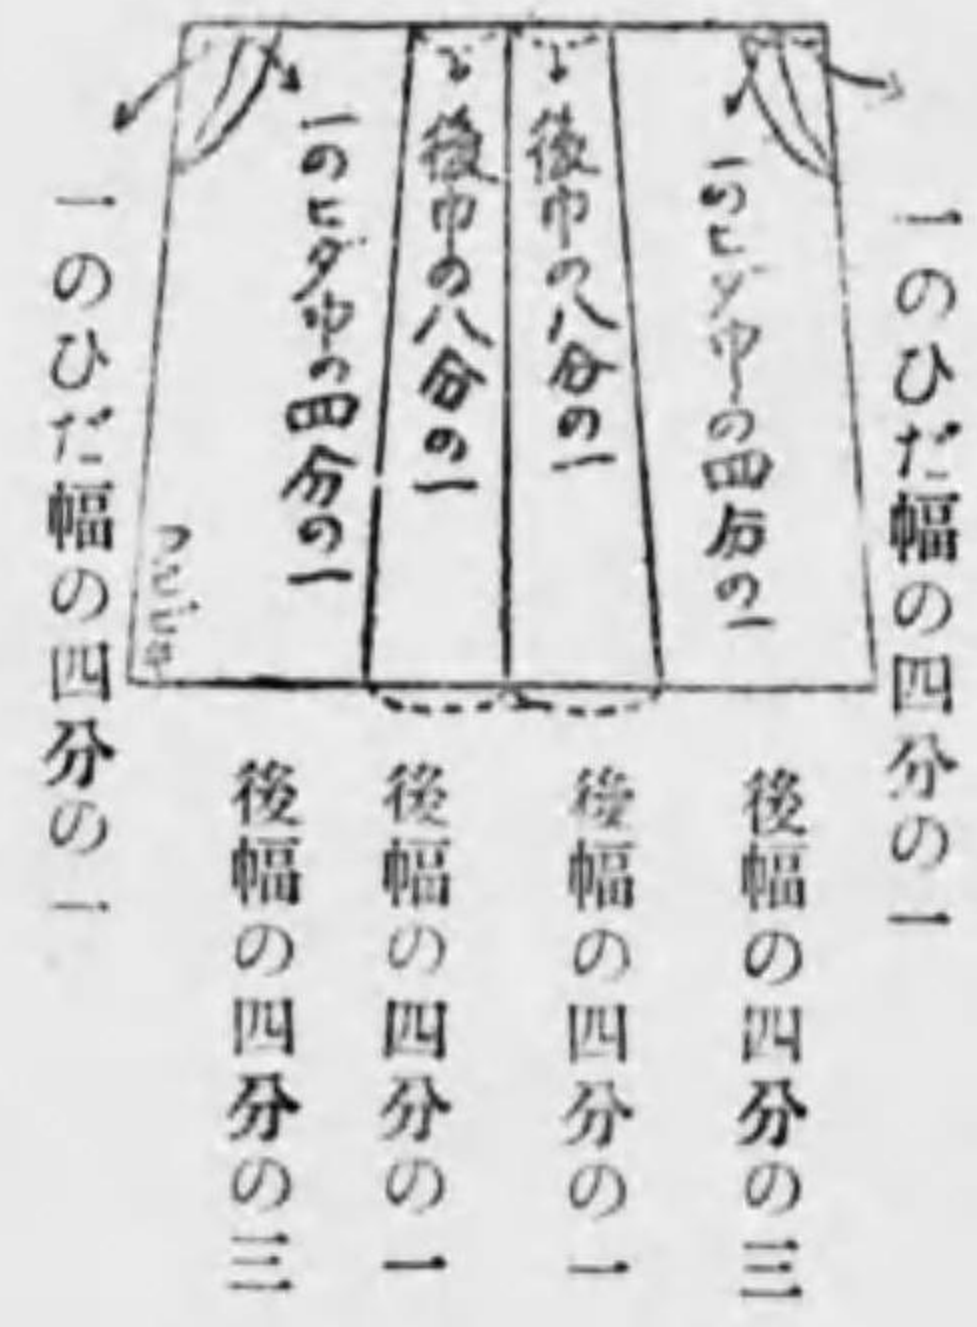 一のひだ幅の四分の一
一のヒダ巾の四分の一
後巾の八分の一
後巾の八分の一
一のヒダ巾の四分の一
一のひだ幅の四分の一
後幅の四分の三
後幅の四分の一
後幅の四分の一
後幅の四分の三